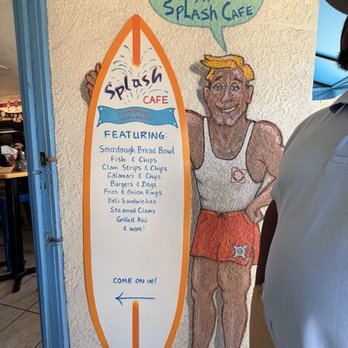 SPLASH CAFE
Splash
CAFE
FEATURING:
Sourdough Bread Bowl
Fish & Chips
Clam Strips & Chips
Calamari & Chips
Burgers & Dogs
Fries & Onion Rings
Deli Sandwiches
Steamed Clams
Grilled Ahi
& more!
COME ON IN!